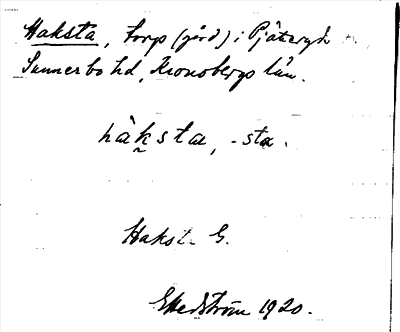 Haksta, torp (gård) i Pjätteryd
Sunnerbo hd, Kronobergs län.
hàksta, -sta.
Haksta G.
EHedström 1920.